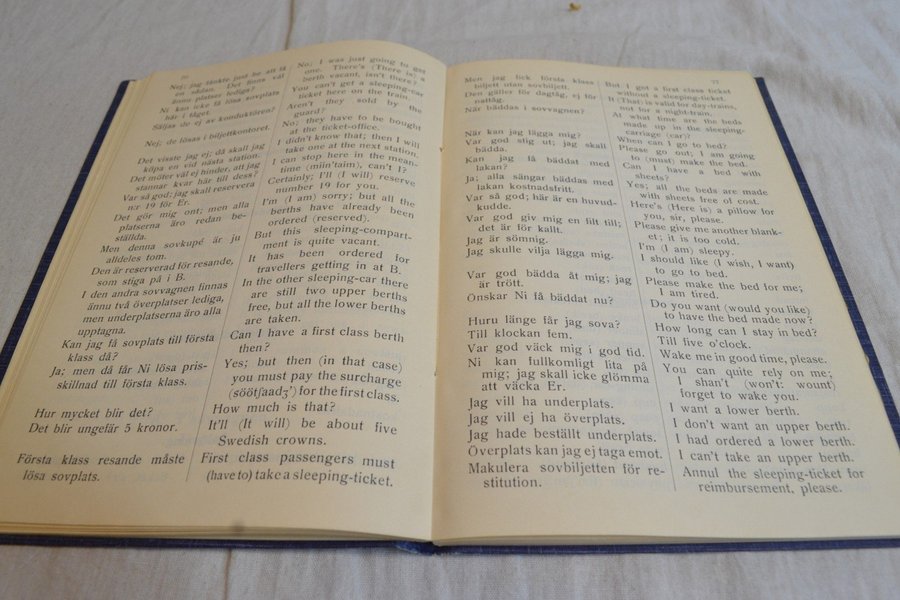 Nej; jag tänkte just be att få
en sådan. Det finns väl
ännu platser lediga?
Ni kan icke få lösa sovplats
här i tåget.
Säljas de ej av konduktören?
Nej; de lösas i biljettkontoret.
Det visste jag ej; då skall jag
köpa en vid nästa station.
Det möter väl ej hinder, att jag
stannar kvar här till dess?
Var så god; jag skall reservera
nr 19 för Er.
Det gör mig ont; men alla
platserna äro redan be-
ställda.
Men denna sovkupé är ju
alldeles tom.
Den är reserverad för resande,
som stiga på i B.
I den andra sovvagnen finnas
ännu två överplatser lediga,
men underplatserna äro alla
upptagna.
Kan jag få sovplats till första
klass då?
Ja; men då får Ni lösa pris-
skillnad till första klass.
Hur mycket blir det?
Det blir ungefär 5 kronor.
Första klass resande måste
lösa sovplats.
No; I was just going to get
one. There's (There is) a
berth vacant, isn't there?
You can't get a sleeping-car
ticket here on the train.
Aren't they sold by the
guard?
No; they have to be bought
at the ticket-office.
I didn't know that; then I will
take one at the next station.
I can stop here in the mean-
time (miin'taim), can't I?
Certainly; I'll (I will) reserve
number 19 for you.
I'm (I am) sorry; but all the
berths have already been
ordered (reserved).
But this sleeping-compart-
ment is quite vacant.
It has been ordered for
travellers getting in at B.
In the other sleeping-car there
are still two upper berths
free, but all the lower berths
are taken.
Can I have a first class berth
then?
Yes; but then (in that case)
you must pay the surcharge
(söötʃaadʒ') for the first class.
How much is that?
It'll (It will) be about five
Swedish crowns.
First class passengers must
(have to) take a sleeping-ticket.
77
Men jag fick första klass
biljett utan sovbiljett.
Den gäller för dagtåg; ej för
nattåg.
När bäddas i sovvagnen?
När kan jag lägga mig?
Var god stig ut; jag skall
bädda.
Kan jag få bäddat med
lakan?
Ja; alla sängar bäddas med
lakan kostnadsfritt.
Var så god; här är en huvud-
kudde.
Var god giv mig en filt till;
det är för kallt.
Jag är sömnig.
Jag skulle vilja lägga mig.
Var god bädda åt mig; jag
är trött.
Önskar Ni få bäddat nu?
Huru länge får jag sova?
Till klockan fem.
Var god väck mig i god tid.
Ni kan fullkomligt lita på
mig; jag skall icke glömma
att väcka Er.
Jag vill ha underplats.
Jag vill ej ha överplats.
Jag hade beställt underplats.
Överplats kan jag ej taga emot.
Makulera sovbiljetten för re-
stitution.
But I got a first class ticket
without a sleeping-ticket.
It (That) is valid for day-trains,
not for a night-train.
At what time are the beds
made up in the sleeping-
carriage (car)?
When can I go to bed?
Please go out; I am going
to (must) make the bed.
Can I have a bed with
sheets?
Yes; all the beds are made
with sheets free of cost.
Here's (Here is) a pillow for
you, sir, please.
Please give me another blank-
et; it is too cold.
I'm (I am) sleepy.
I should like (I wish, I want)
to go to bed.
Please make the bed for me;
I am tired.
Do you want (would you like)
to have the bed made now?
How long can I stay in bed?
Till five o'clock.
Wake me in good time, please.
You can quite rely on me;
I shan't (won't: wount)
forget to wake you.
I want a lower berth.
I don't want an upper berth.
I had ordered a lower berth.
I can't take an upper berth.
Annul the sleeping-ticket for
reimbursement, please.